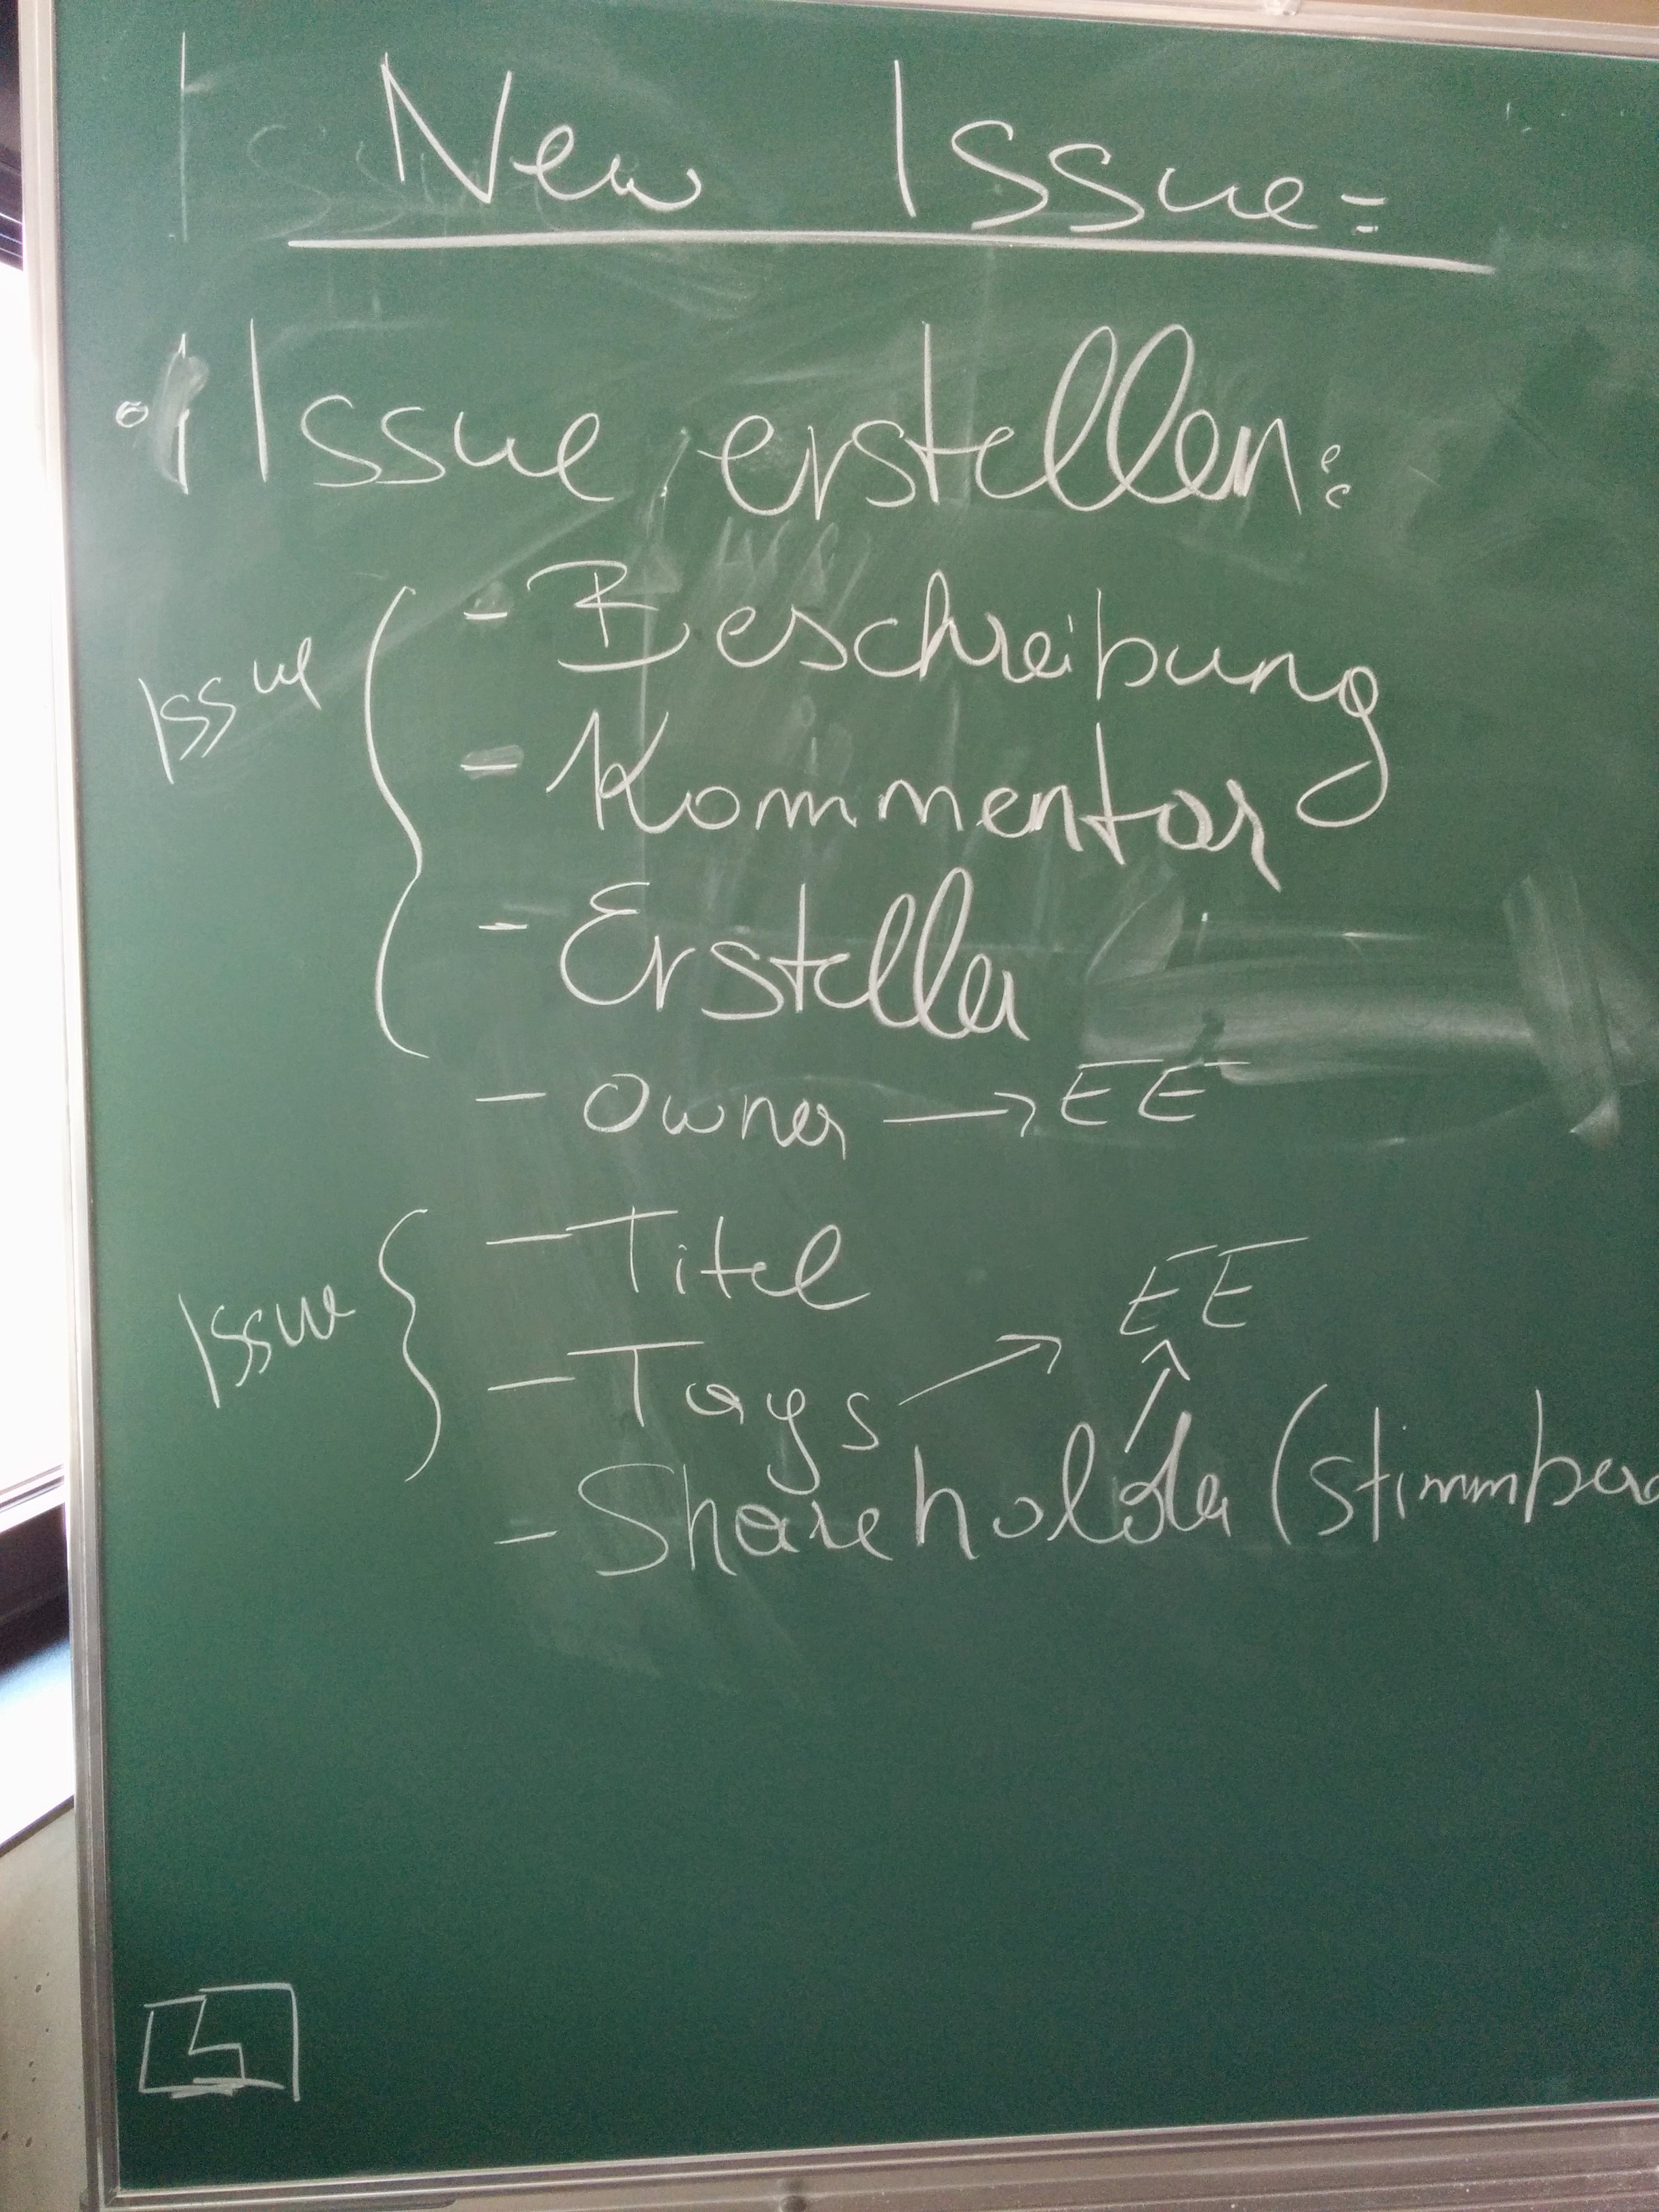 New Issue:
Issue erstellen:
Issue
- Beschreibung
- Kommentar
- Ersteller
- Owner → EE
Issue
- Titel
- Tags → EE
- Shareholder (Stimmber